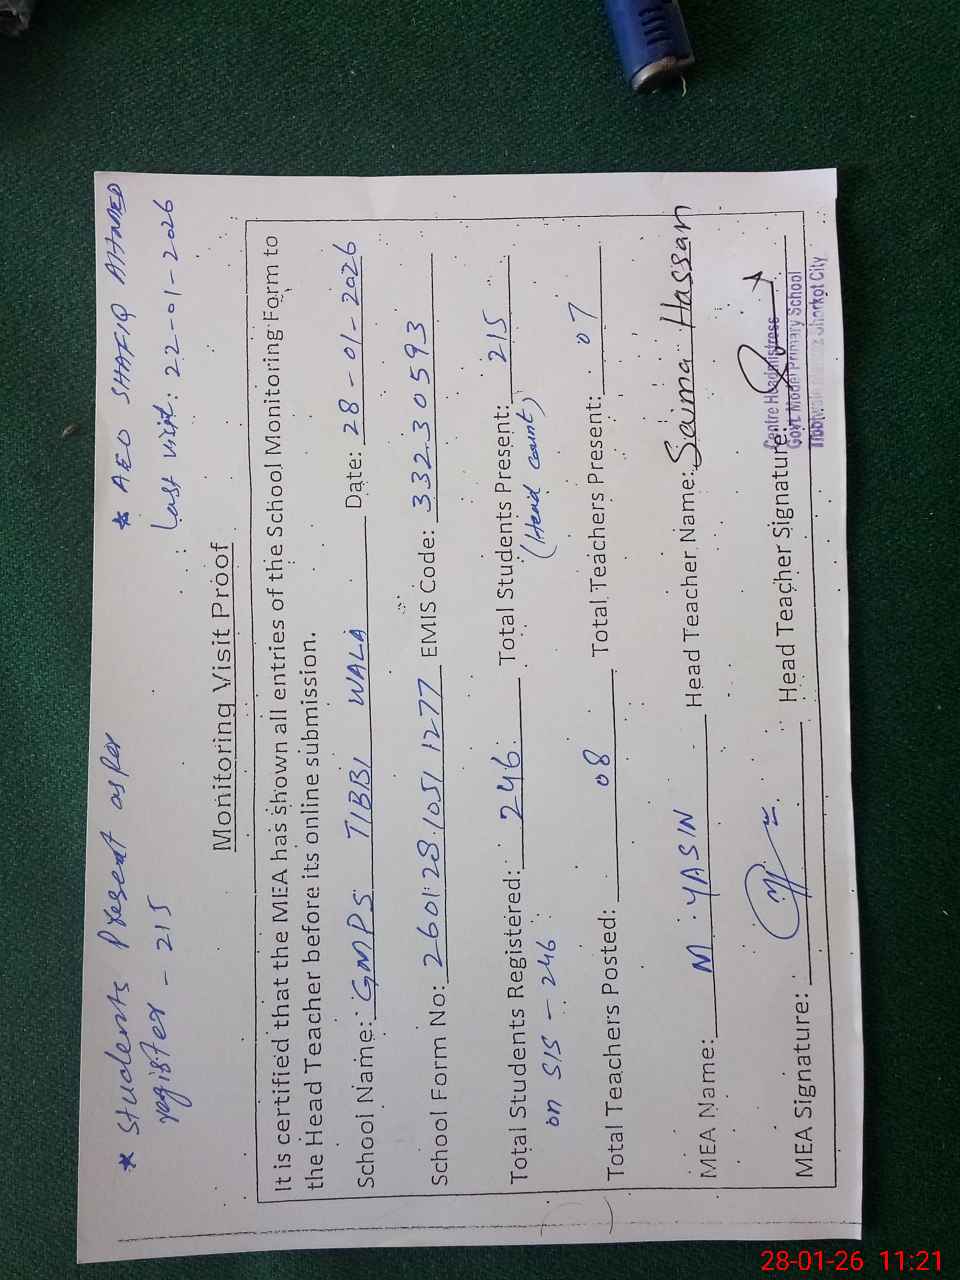 * Students Present as per
register - 215
* AEO SHAFIQ AHMED
Last visit: 22-01-2026
Monitoring Visit Proof
It is certified that the MEA has shown all entries of the School Monitoring Form to
the Head Teacher before its online submission.
School Name: GMPS TIBBI WALA Date: 28-01-2026
School Form No: 2601281051 1277 EMIS Code: 33230593
Total Students Registered: 246 Total Students Present: 215
on SIS - 246 (Head count)
Total Teachers Posted: 08 Total Teachers Present: 07
MEA Name: M. YASIN Head Teacher Name: Saima Hassan
MEA Signature: Head Teacher Signature:
Centre Headmistress
Govt. Model Primary School
Shorkot City
28-01-26 11:21